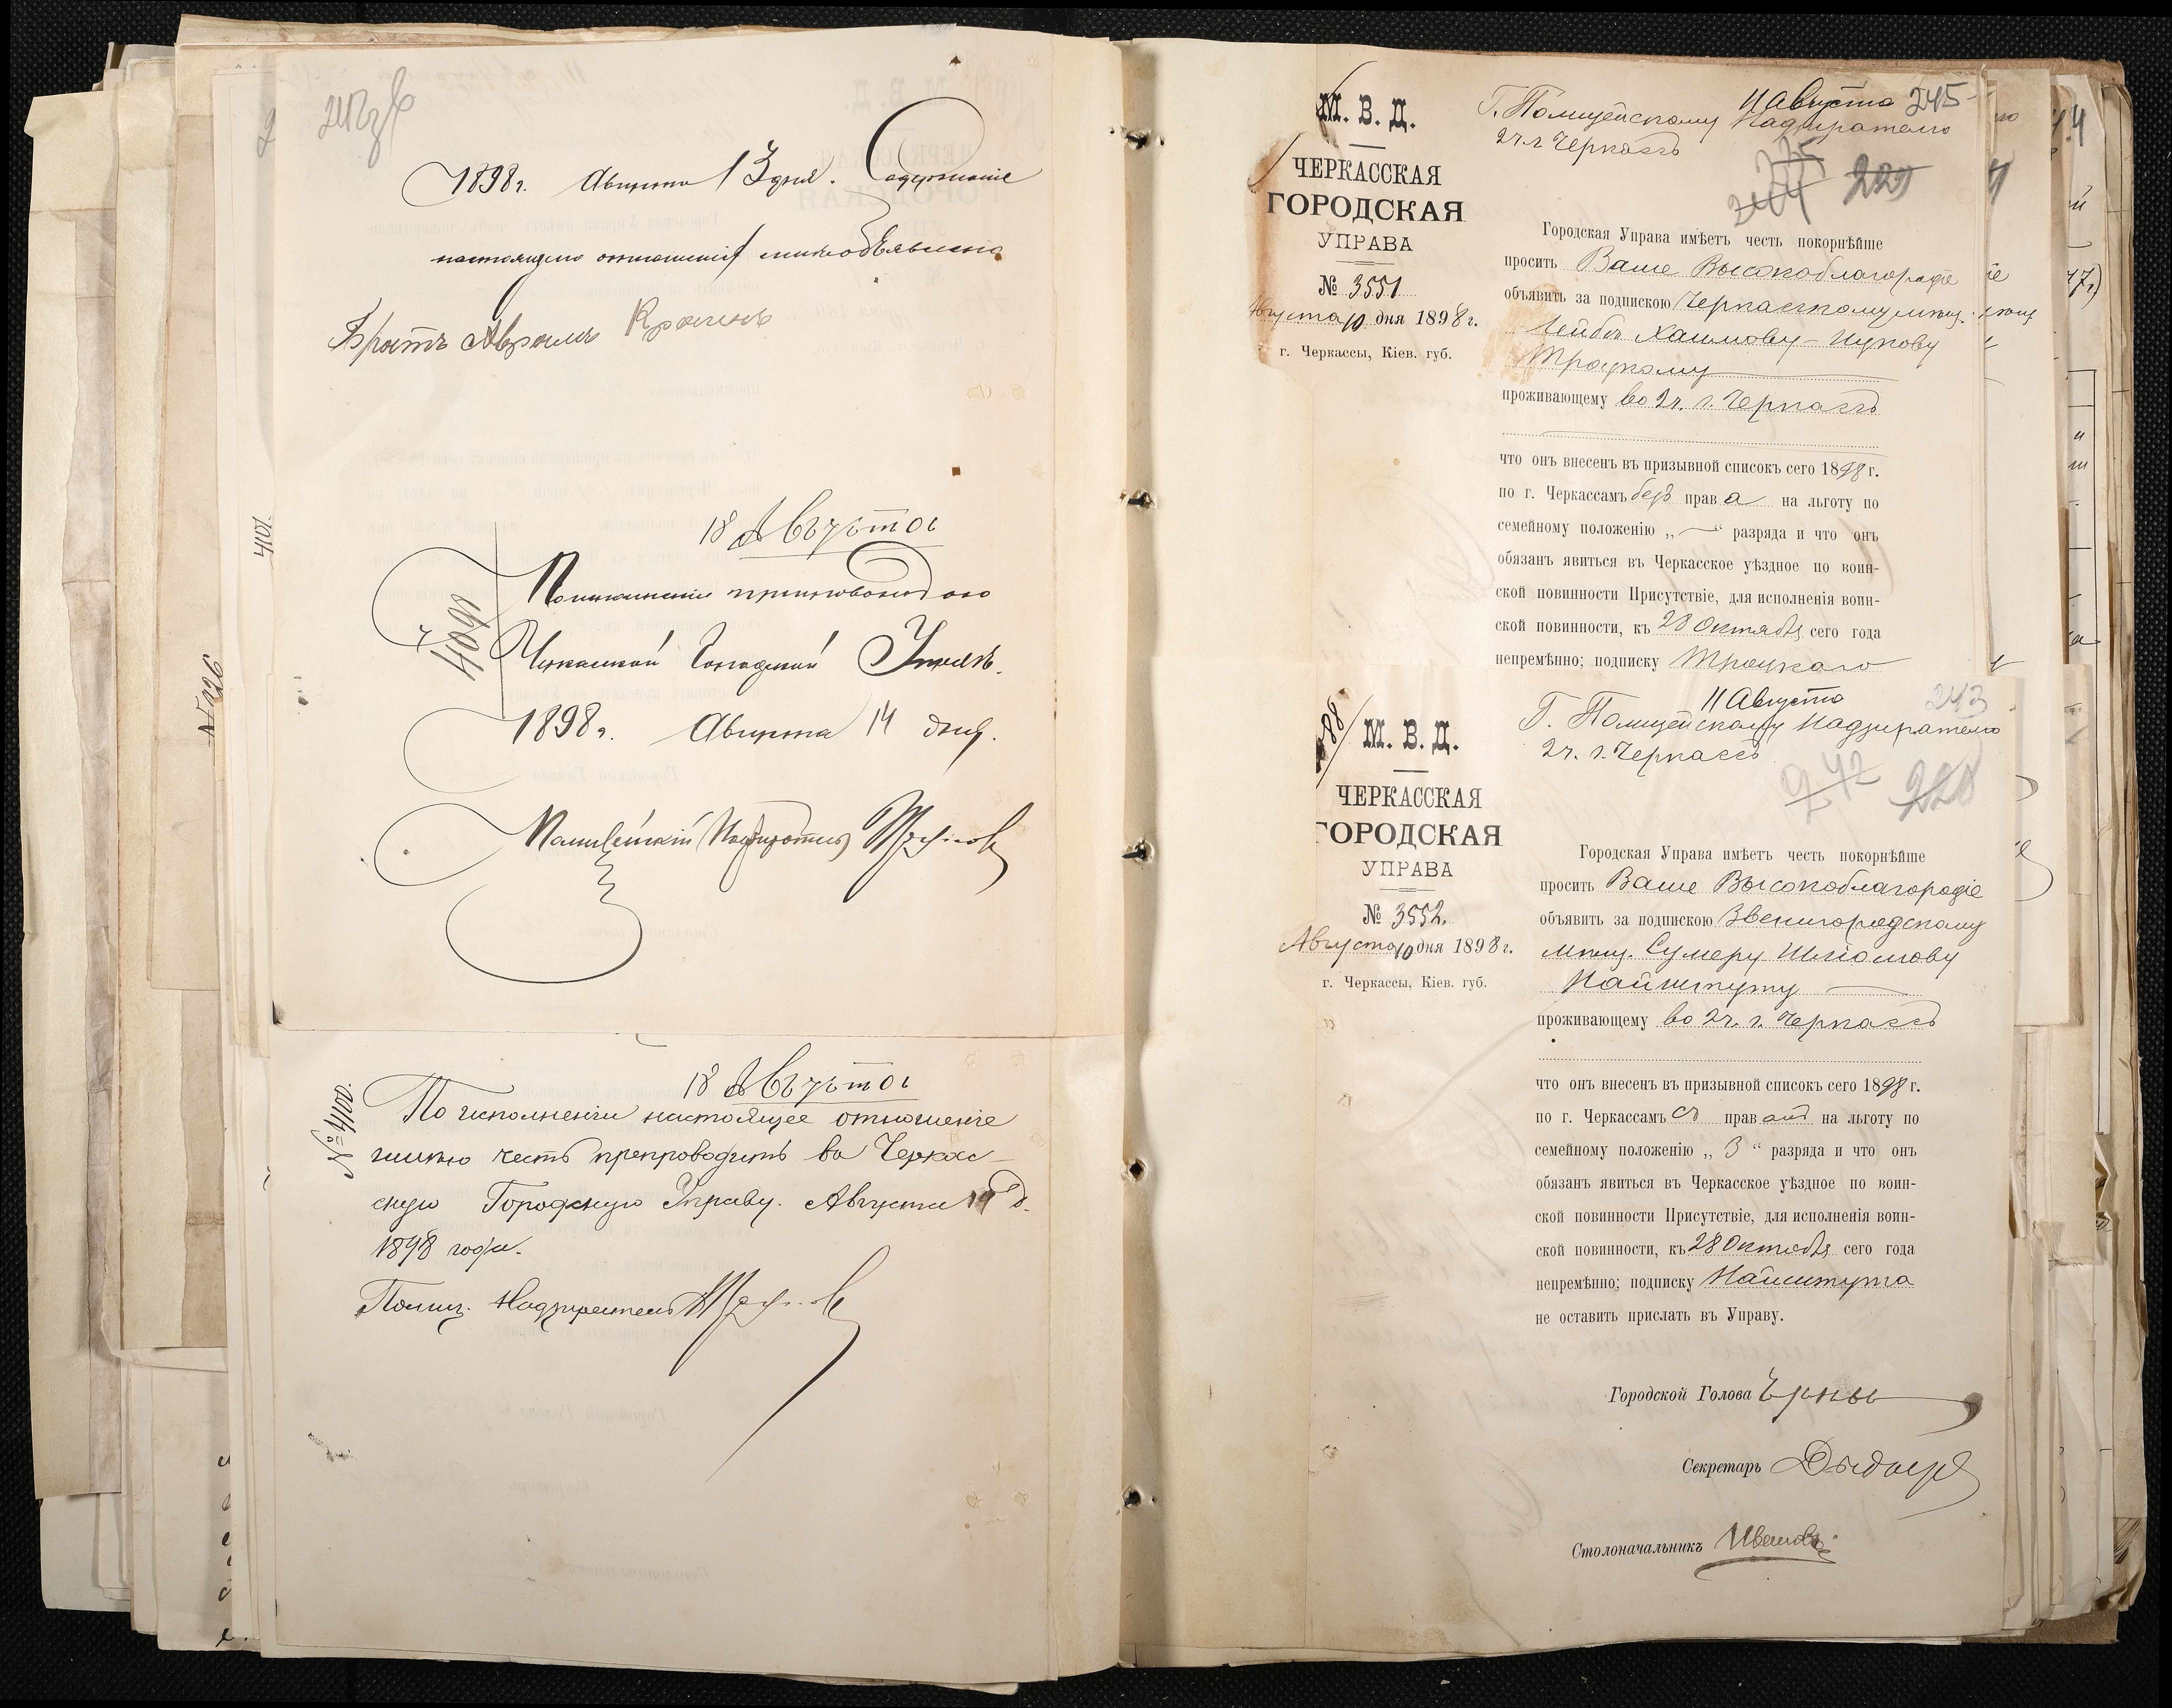 1898 г. Августа 13 дня. Содержаніе
настоящего отношенія мнѣ объявлено
Братъ Аврамъ
18 Августа
4099
По исполненіи препровождаю
Черкасской Городской Управѣ.
1898 г. Августа 14 дня.
Полицейскій Надзиратель
4101.
№ 126
18 Августа
№ 4100.
По исполненіи настоящее отношеніе
имѣю честь препроводить въ Черкас-
скую Городскую Управу. Августа 14 д.
1898 года.
Полиц. Надзиратель
М. В. Д.
ЧЕРКАССКАЯ
ГОРОДСКАЯ
УПРАВА
№ 3551
Августа 10 дня 1898 г.
г. Черкассы, Кіев. губ.
11 Августа 245
Г. Полицейскому Надзирателю
2 ч. г. Черкассъ
244 229
Городская Управа имѣетъ честь покорнѣйше
просить Ваше Высокоблагородіе
объявить за подпискою Черкасскому мѣщ.
Лейбѣ Хаимову-Ицкову
Троцкому
проживающему во 2 ч. г. Черкассъ
что онъ внесенъ въ призывной списокъ сего 1898 г.
по г. Черкассамъ безъ права на льготу по
семейному положенію „—“ разряда и что онъ
обязанъ явиться въ Черкасское уѣздное по воин-
ской повинности Присутствіе, для исполненія воин-
ской повинности, къ 28 Октября сего года
непремѣнно; подписку Троцкаго
М. В. Д.
ЧЕРКАССКАЯ
ГОРОДСКАЯ
УПРАВА
№ 3552.
Августа 10 дня 1898 г.
г. Черкассы, Кіев. губ.
11 Августа 243
Г. Полицейскому Надзирателю
2 ч. г. Черкассъ
242 228
Городская Управа имѣетъ честь покорнѣйше
просить Ваше Высокоблагородіе
объявить за подпискою Звенигородскому
мѣщ. Сумеру Шліомову
Найшпуту
проживающему во 2 ч. г. Черкассъ
что онъ внесенъ въ призывной списокъ сего 1898 г.
по г. Черкассамъ съ правомъ на льготу по
семейному положенію „ 3 “ разряда и что онъ
обязанъ явиться въ Черкасское уѣздное по воин-
ской повинности Присутствіе, для исполненія воин-
ской повинности, къ 28 Октября сего года
непремѣнно; подписку Найшпута
не оставить прислать въ Управу.
Городской Голова
Секретарь
Столоначальникъ Ивановъ